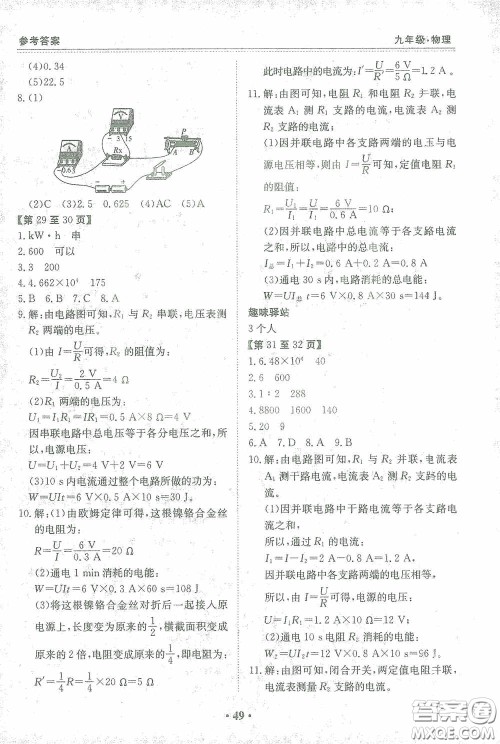 参考答案
九年级·物理
(4)0.34
(5)22.5
8.(1)
Rx
P
A
B
-0.63
-3 15
(2)C (3)2.5 0.625 (4)AC (5)A
【第 29 至 30 页】
1.kW·h 串
2.600 可以
3.3 200
4.4.662×10⁴ 175
5.B 6.B 7.C 8.A
9.解:由电路图可知,R₁ 与 R₂ 串联,电压表
测 R₂ 两端的电压。
(1)由 I=U/R可得,R₂ 的阻值为:
R₂=U₂/I=2 V/0.5 A=4 Ω
(2)R₁ 两端的电压为:
U₁=I₁R₁=IR₁=0.5 A×8 Ω=4 V
因串联电路中总电压等于各分电压之和,
所以,电源电压:
U=U₁+U₂=4 V+2 V=6 V
(3)10 s 内电流通过整个电路所做的功为:
W=UIt=6 V×0.5 A×10 s=30 J
10.解:(1)由欧姆定律可得,这根镍铬合金丝
的电阻为:
R=U/I=6 V/0.3 A=20 Ω
(2)通电 1 min 消耗的电能:
W=UIt=6 V×0.3 A×60 s=108 J
(3)将这根镍铬合金丝对折后一起接入原
电源上,长度变为原来的1/2,横截面积变
为原来的2倍,电阻变成原来的1/4,即电阻为:
R′=1/4R=1/4×20 Ω=5 Ω
此时电路中的电流为:I′=U/R′=6 V/5 Ω=1.2 A。
11.解:由图可知,电阻 R₁ 和电阻 R₂ 并联,电
流表 A₁ 测 R₁ 支路的电流,电流表 A₂ 测
R₂ 支路的电流;
(1)因并联电路中各支路两端的电压与
电源电压相等,则由 I=U/R可知,电阻 R₁
的阻值:
R₁=U₁/I₁=6 V/0.6 A=10 Ω;
(2)因并联电路中总电流等于各支路电
流之和,所以,电路中的总电流为:
I总=I₁+I₂=0.6 A+0.2 A=0.8 A
(3)通电 30 s,电路消耗的总电能:
W=UI总t=6 V×0.8 A×30 s=144 J。
趣味驿站
3 个人
【第 31 至 32 页】
1.6.48×10⁴ 40
2.6 600
3.1∶2 288
4.8800 1600 140
5.0.9 9
6.A 7.D 8.A 9.D
10.解:由电路图可知,R₁ 与 R₂ 并联,电流表 A
测干路电流,电流表 A₁ 测 R₁ 支路的
电流。
(1)因并联电路中干路电流等于各支路
电流之和,
所以,通过电阻 R₂ 的电流:
I₂=I-I₁=1.5 A-1 A=0.5 A
因并联电路中各支路两端的电压相等,
所以,由 I=U/R可得,电源的电压:
U=U₂=I₂R₂=0.5 A×12 Ω=6 V
(2)通电 10 s 电阻 R₂ 消耗的电能:
W₂=UI₂t=6 V×0.5 A×10 s=30 J
11.解:由图可知,闭合开关,两定值电阻并联,
49
答案圈
MXQE.COM